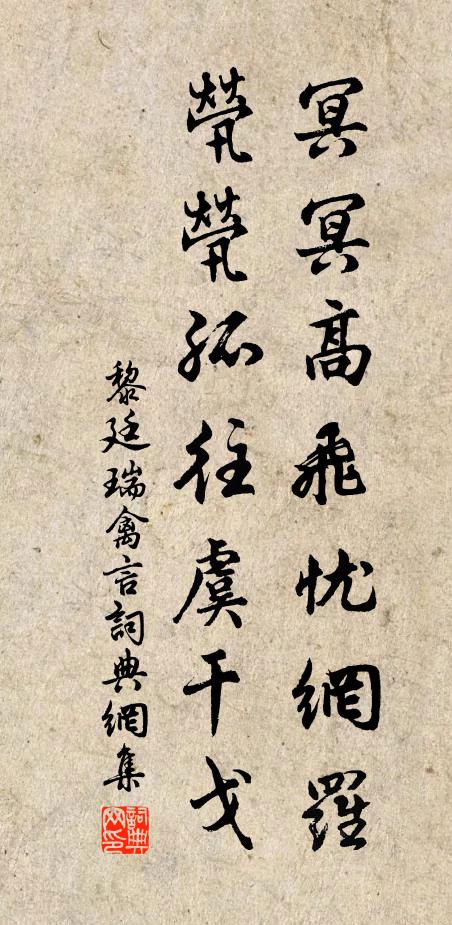 冥冥高飛忧網羅
煢煢孤往虞干戈
黎廷瑞禽言詞典網集
詞典網印